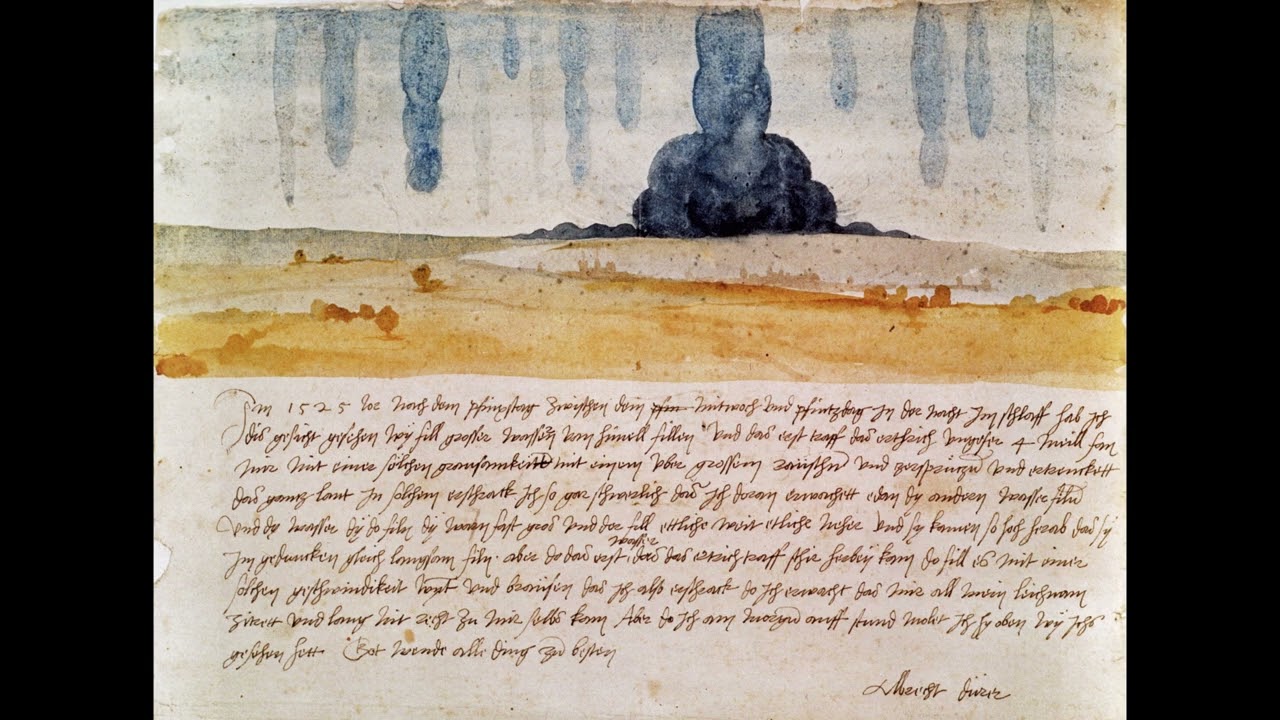 Im 1525 Jor nach dem pfinxstag zwischen dem mitwoch und pfintzdag in der nacht im schlaff hab ich
dis gesicht gesehen wy fill grosser wassern van himell fillen Und das erst traff das erthrich ungefer 4 meill fan
mir mit einer solchen grausamkeitt mit einem uber grossem raüschn und zersprützn und ertrenckett
das gantz lant In solchem erschrack ich so gar schwerlich das ich doran erwachett edan dy andern wasser filn
Und dy wasser dy do filn dy warn fast gros und der fill ettliche weit etliche neher und sy kamen so hoch herab das sy
im gedancken gleich langsam filn. aber do das erst wasser das das ertrich traff schir herbey kam do fill es mit einer
solchen geschwindikeit wynt und braüsen das ich also erschrack do ich erwacht das mir all mein leichnam
zitrett und lang nit recht zu mir selbs kam Aber do ich am morgn auff stund molet ich hy oben wy ichs
gesehen hett Got wende alle ding zu besten
Albrecht dürer